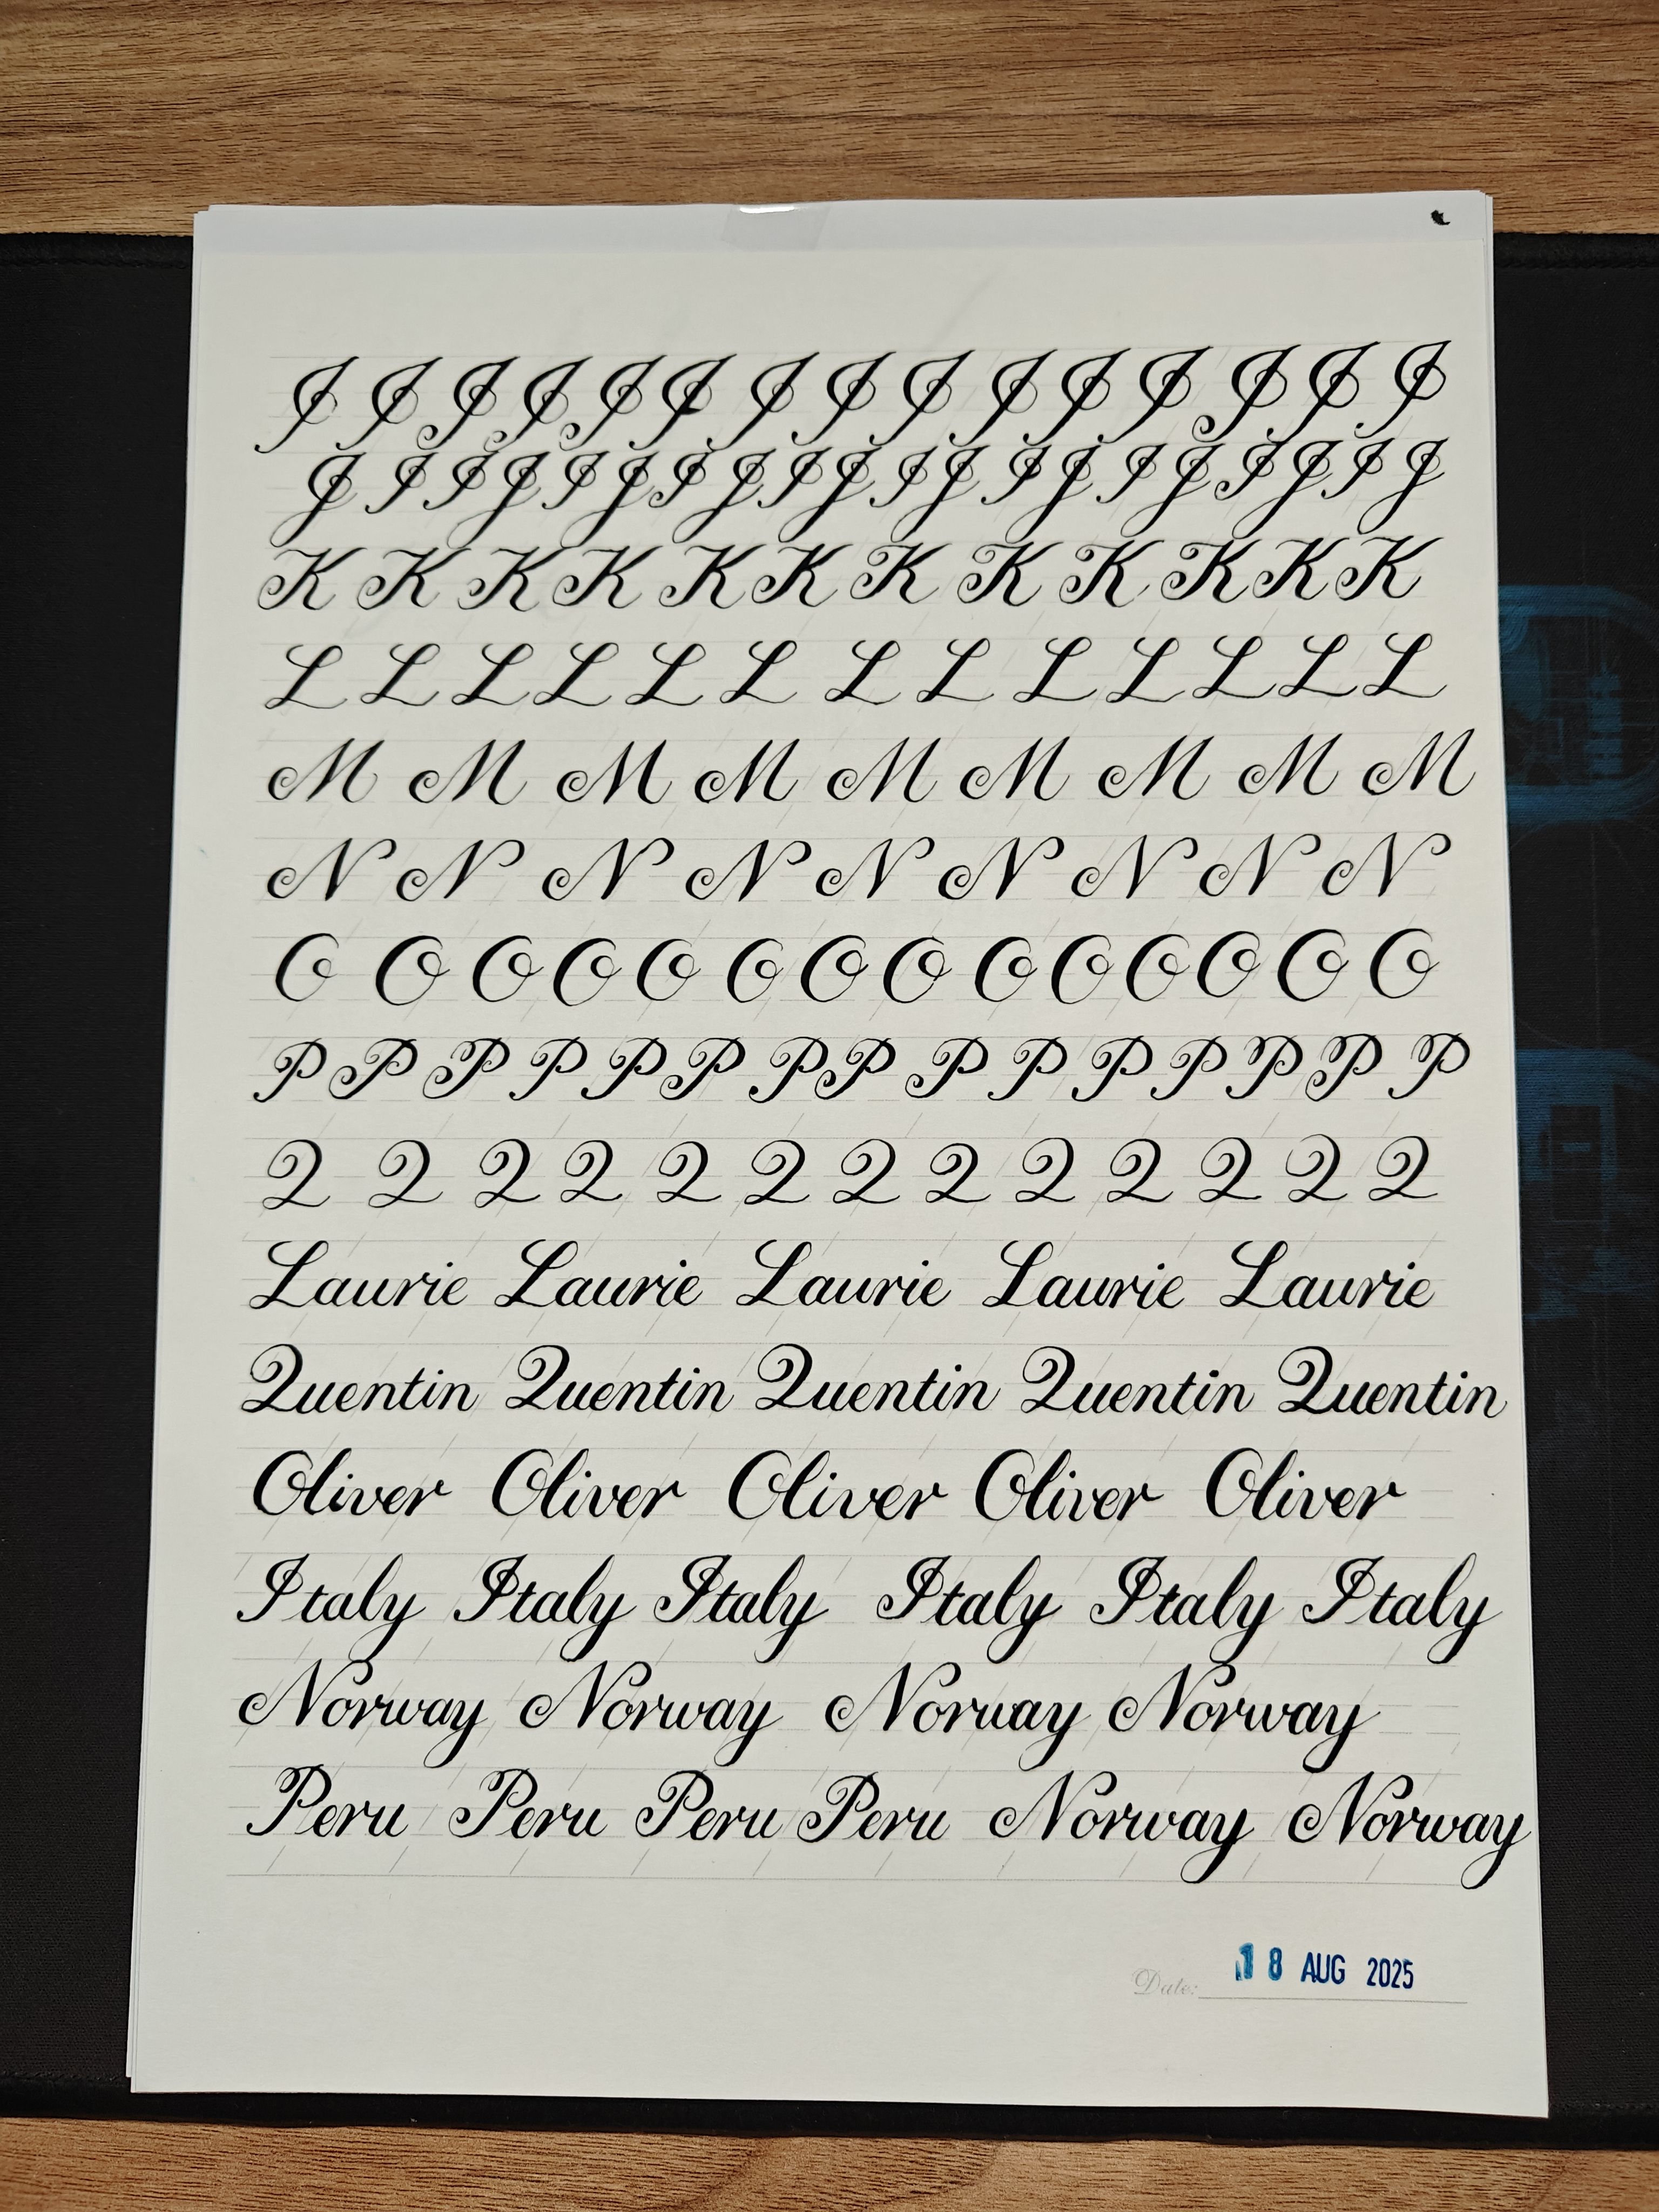 I I I I I I I I I I I I I I I
J I I J I J I J I J I J I J I J I J I J
K K K K K K K K K K K K
L L L L L L L L L L L L L
M M M M M M M M M
N N N N N N N N N
O O O O O O O O O O O O O O
P P P P P P P P P P P P P P P
Q Q Q Q Q Q Q Q Q Q Q Q Q
Laurie Laurie Laurie Laurie Laurie
Quentin Quentin Quentin Quentin Quentin
Oliver Oliver Oliver Oliver Oliver
Italy Italy Italy Italy Italy Italy
Norway Norway Norway Norway
Peru Peru Peru Peru Norway Norway
Date: 18 AUG 2025